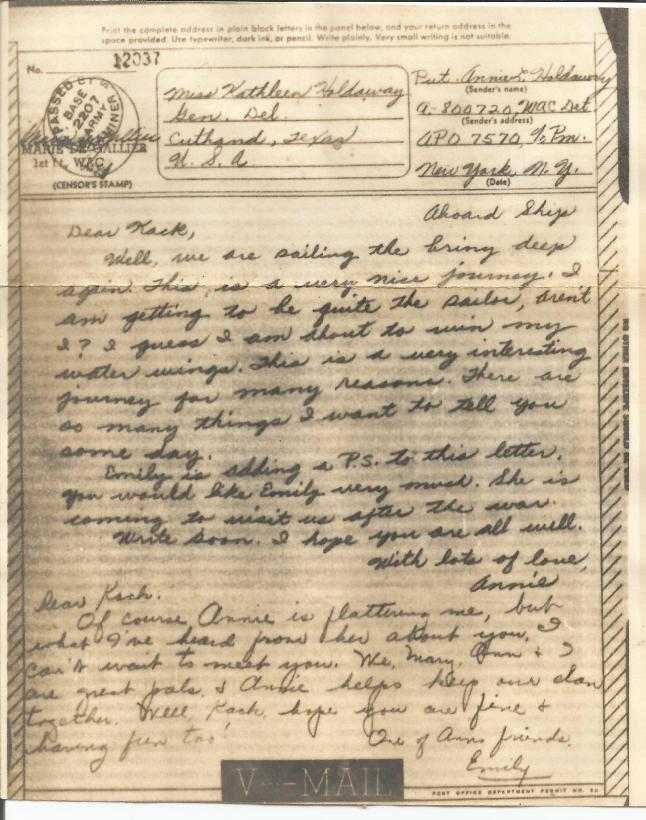 Print the complete address in plain block letters in the panel below, and your return address in the
space provided. Use typewriter, dark ink, or pencil. Write plainly. Very small writing is not suitable.
No.
12037
PASSED BY
BASE
2207
ARMY
EXAMINER
MARIE DE GALLIER
1st Lt., WAC
(CENSOR'S STAMP)
Miss Kathleen Holdaway
Gen. Del.
Cuthand, Texas
U. S. A.
Pvt. Annie E Holdaway
(Sender's name)
A-800720, WAC Det
(Sender's address)
APO 7570, % Pm.
New York, N. Y.
(Date)
Aboard Ship
Dear Kack,
Well, we are sailing the briny deep
again. This is a very nice journey. I
am getting to be quite the sailor, aren't
I? I guess I am about to win my
water wings. This is a very interesting
journey for many reasons. There are
so many things I want to tell you
some day.
Emily is adding a P.S. to this letter.
You would like Emily very much. She is
coming to visit us after the war.
Write soon. I hope you are all well.
With lots of love,
Annie
Dear Kach.
Of course, Annie is flattering me, but
what I've heard from her about you, I
can't wait to meet you. We, Mary, Ann & I
are great pals, & Annie helps keep our clan
together. Well, Kach, hope you are fine &
having fun too!
One of Anns friends.
Emily
V---MAIL
POST OFFICE DEPARTMENT PERMIT NO.